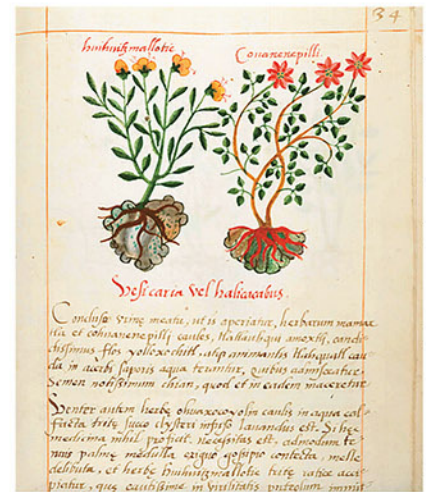 34
huihuitzmallotic Couanenepilli.
Vesicaria vel halicacabus.
Concluso urinę meatu, ut is aperiatur, herbarum mamax-
tla et cohuanenepilli caules, tlatlauhqui amoxtli, candi-
dissimus flos yolloxochitl, atque animantis cau-
da in acerbi saporis aqua terantur, quibus admisceatur
Semen notissimum chian, quod et in eadem maceretur
Venter autem herbę ohuaxocoyolin caulis in aqua cal-
facta tritę succo clysteri infuso lauandus est. Si hęc
medicina nihil proficit. necessitas est, admodum te-
nuis palmę medulla exiguo gosipio contecta, melle
delibuta, et herbę huihuitzmallotic tritę radice acci-
piatur, quę cautissime in virilitatis